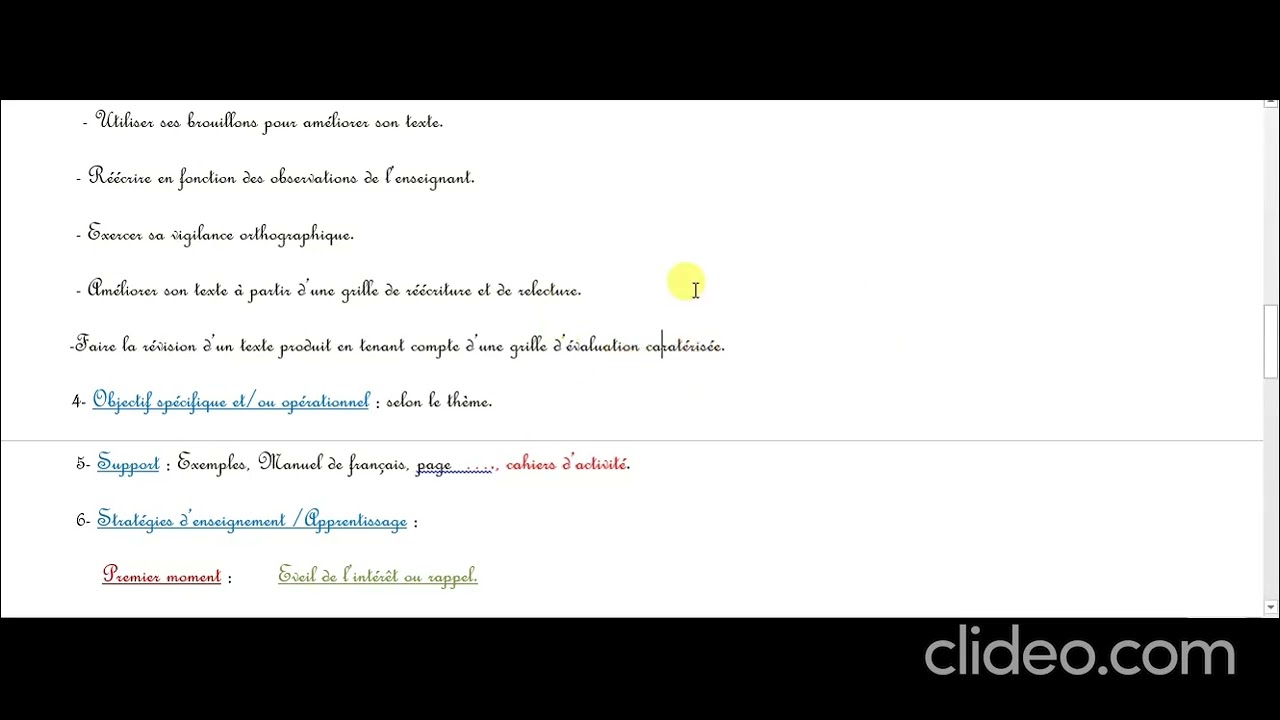 - Utiliser ses brouillons pour améliorer son texte.
- Réécrire en fonction des observations de l'enseignant.
- Exercer sa vigilance orthographique.
- Améliorer son texte à partir d'une grille de réécriture et de relecture.
-Faire la révision d'un texte produit en tenant compte d'une grille d'évaluation caratérisée.
4- Objectif spécifique et/ou opérationnel : selon le thème.
5- Support : Exemples, Manuel de français, page ...., cahiers d'activité.
6- Stratégies d'enseignement /Apprentissage :
Premier moment : Eveil de l'intérêt ou rappel.
clideo.com